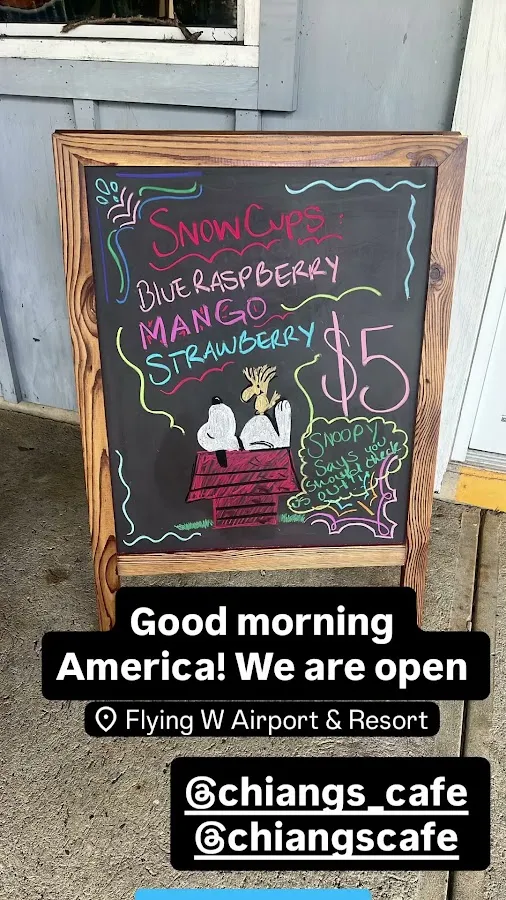 SNOW CUPS:
BLUE RASPBERRY
MANGO
STRAWBERRY
$5
SNOOPY
says you
should check
us out!
Good morning
America! We are open
Flying W Airport & Resort
@chiangs_cafe
@chiangscafe